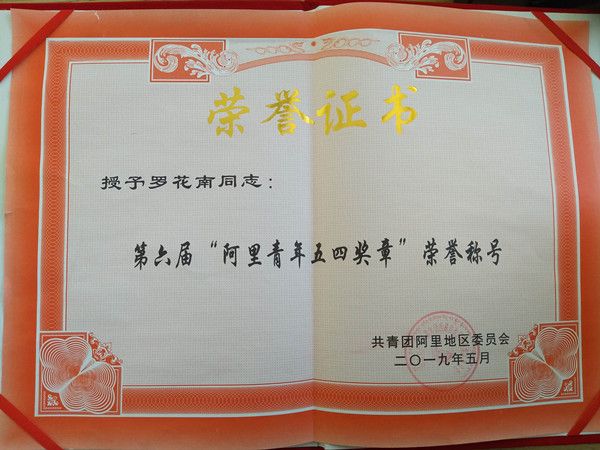 荣誉证书
授予罗花南同志：
第六届“阿里青年五四奖章”荣誉称号
共青团阿里地区委员会
二〇一九年五月